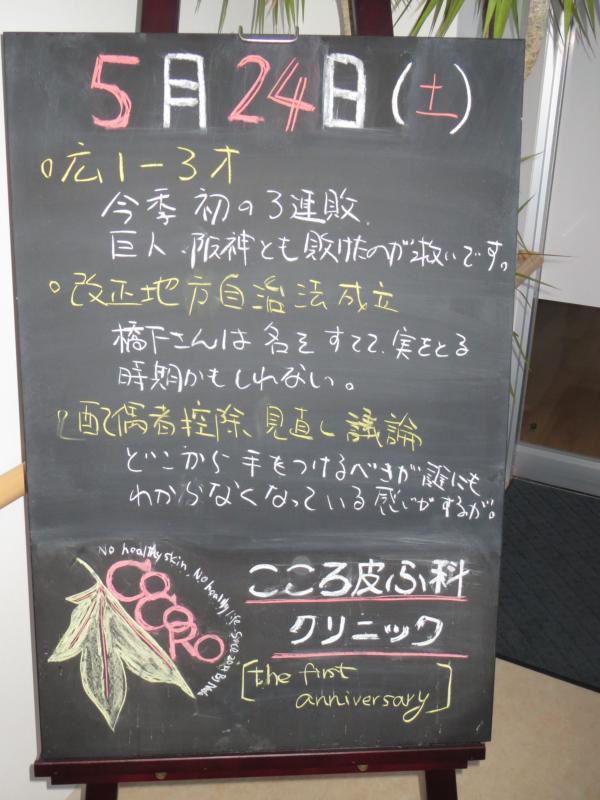 5月24日(土)
広1-3オ
今季初の3連敗.
巨人、阪神とも敗けたのが救いです。
改正地方自治法成立
橋下さんは名をすてて、実をとる
時期かもしれない。
配偶者控除、見直し議論
どこから手をつけるべきか誰にも
わからなくなっている感じがするが。
No healthy skin, No healthy life
COCORO
こころ皮ふ科
クリニック
[the first
anniversary]